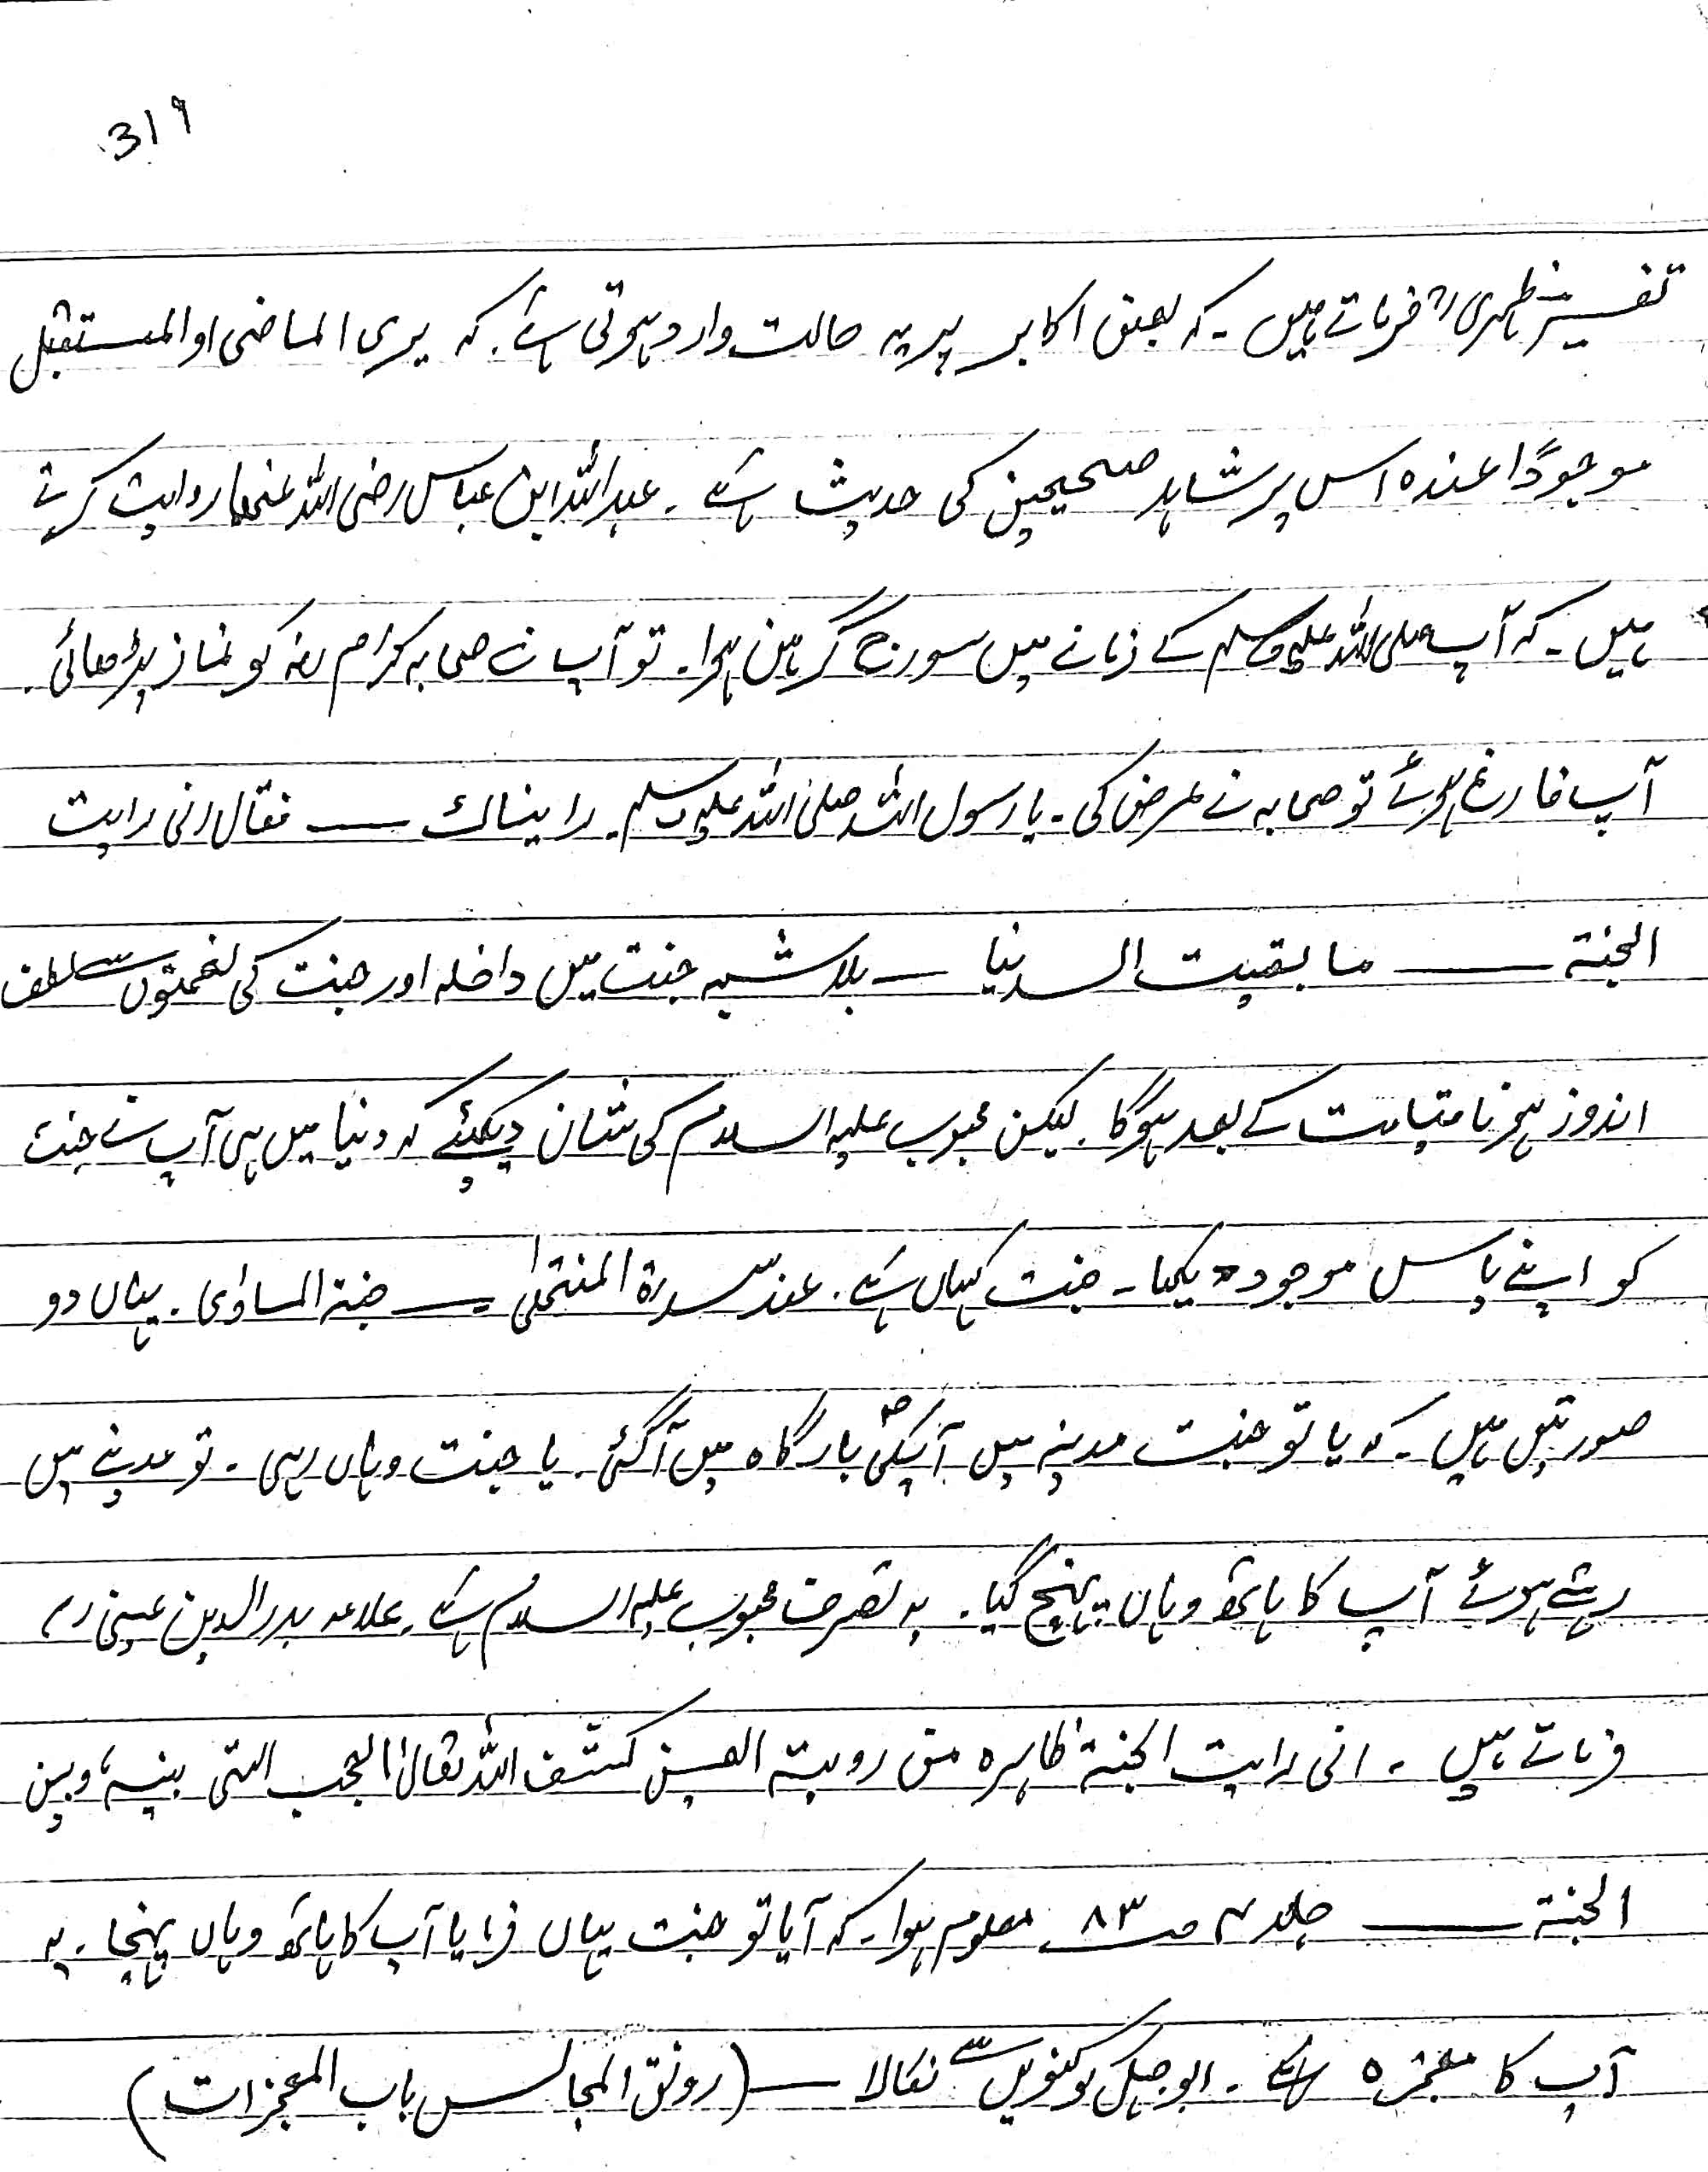 319
تفسیر مظہری رح فرماتے ہیں ۔ کہ بعض اکابر پر یہ حالت وارد ہوتی ہے ۔ کہ یری الماضی او المستقبل
موجودًا عندہ اس پر شاہد صحیحین کی حدیث ہے ۔ عبداللہ ابن عباس رضی اللہ عنھما روایت کرتے
ہیں ۔ کہ آپ صلی اللہ علیہ وسلم کے زمانے میں سورج گرہن ہوا ۔ تو آپ نے صحابہ کرام رضہ کو نماز پڑھائی ۔
آپ فارغ ہوئے تو صحابہ نے عرض کی ۔ یا رسول اللہ صلی اللہ علیہ وسلم ۔ رایناک ــــ فقال انی رایت
الجنۃ ــــ ما بقیت الدنیا ــ بلا شبہ جنت میں داخلہ اور جنت کی نعمتوں سے لطف
اندوز ہونا قیامت کے بعد ہوگا ۔ لیکن محبوب علیہ السلام کی شان دیکھئے کہ دنیا میں ہی آپ نے جنت
کو اپنے پاس موجود دیکھا ۔ جنت کہاں ہے ۔ عند سدرۃ المنتھیٰ ــــ جنۃ الماوٰی ۔ یہاں دو
صورتیں ہیں ۔ کہ یا تو جنت مدینہ میں آپکیؐ بارگاہ میں آگئی ۔ یا جنت وہاں رہی ۔ تو مدینے میں
رہتے ہوئے آپ کا ہاتھ وہاں پہنچ گیا ۔ یہ تصرف محبوب علیہ السلام ہے ۔ علامہ بدرالدین عینی رح
فرماتے ہیں ۔ انی رایت الجنۃ ظاہرہ من رویۃ العین کشف اللہ تعالیٰ الحجب التی بینہ، وبین
الجنۃ ــــ جلد ۷ صـ ۸۳ ۔ معلوم ہوا ۔ کہ آیا تو جنت یہاں فرما یا آپ کا ہاتھ وہاں پہنچا ۔ یہ
آپ کا معجزہ ہے ۔ ابوجہل کو کنویں سے نکالا ــــ (رونق المجالس باب المعجزات)